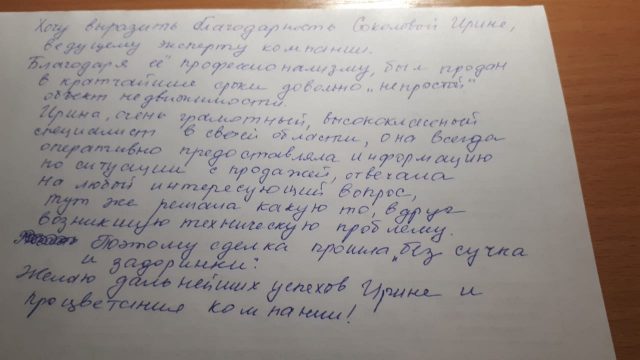 Хочу выразить благодарность Соколовой Ирине,
ведущему эксперту компании.
Благодаря её профессионализму, был продан
в кратчайшие сроки довольно "непростой"
объект недвижимости.
Ирина, очень грамотный, высококлассный
специалист в своей области, она всегда
оперативно предоставляла информацию
по ситуации с продажей, отвечала
на любой интересующий вопрос,
тут же решала какую то вдруг
возникшую техническую проблему.
Поэтому сделка прошла "без сучка
и задоринки".
Желаю дальнейших успехов Ирине и
процветания компании!